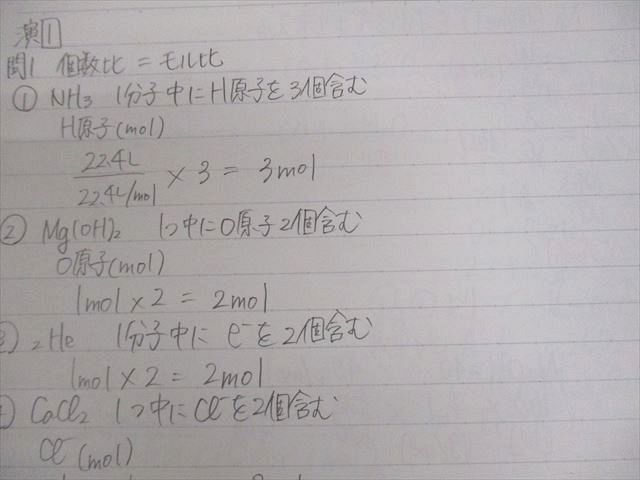 演1
問1 個数比 = モル比
① NH₃ 1分子中にH原子を3個含む
H原子(mol)
22.4L / 22.4L/mol × 3 = 3mol
② Mg(OH)₂ 1つ中にO原子2個含む
O原子(mol)
1mol × 2 = 2mol
₂He 1分子中に e⁻を2個含む
1mol × 2 = 2mol
CaCl₂ 1つ中にCl⁻を2個含む
Cl⁻(mol)